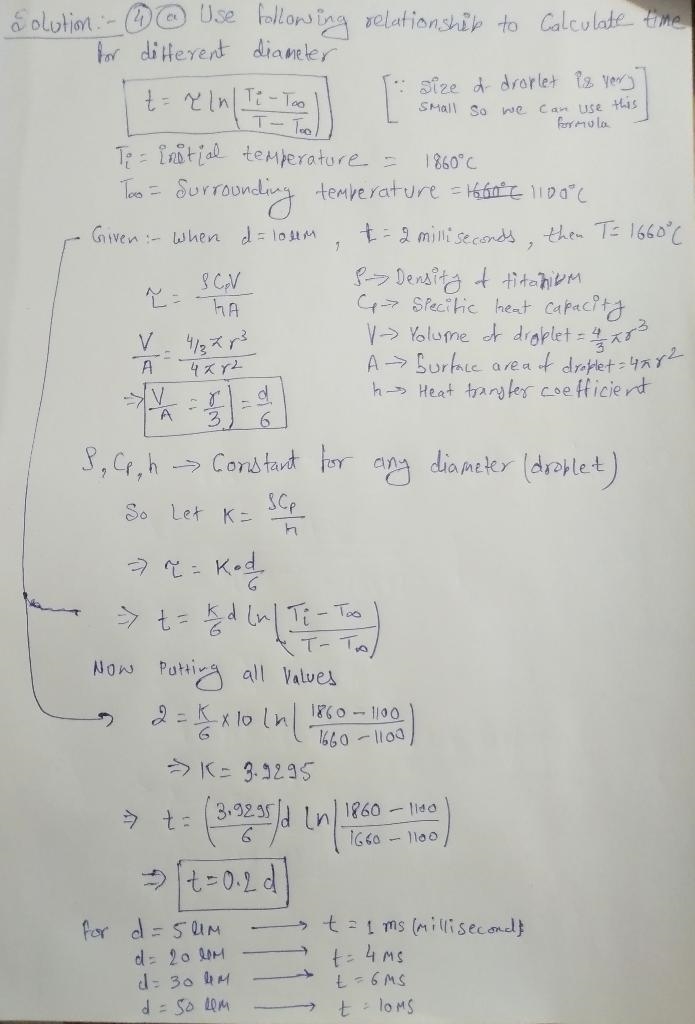 Solution:- (4) (a) Use following relationship to Calculate time
for different diameter
t = τ ln( Ti - T∞ / T - T∞ ) [∵ Size of droplet is very small so we can use this formula]
Ti = initial temperature = 1860°C
T∞ = Surrounding temperature = 1660°C 1100°C
Given :- when d = 10 μm , t = 2 milliseconds , then T = 1660°C
τ = ρCpV / hA
V/A = 4/3 π r³ / 4 π r²
⇒ V/A = r/3 = d/6
ρ → Density of titanium
Cp → Specific heat capacity
V → Volume of droplet = 4/3 π r³
A → Surface area of droplet = 4πr²
h → Heat transfer coefficient
ρ, Cp, h → Constant for any diameter (droplet)
So Let K = ρCp / h
⇒ τ = K·d/6
⇒ t = K/6 d ln( Ti - T∞ / T - T∞ )
Now Putting all values
2 = K/6 x 10 ln( 1860 - 1100 / 1660 - 1100 )
⇒ K = 3.9295
⇒ t = (3.9295/6) d ln( 1860 - 1100 / 1660 - 1100 )
⇒ t = 0.2 d
for d = 5 μm → t = 1 ms (milliseconds)
d = 20 μm → t = 4 ms
d = 30 μm → t = 6 ms
d = 50 μm → t = 10 ms